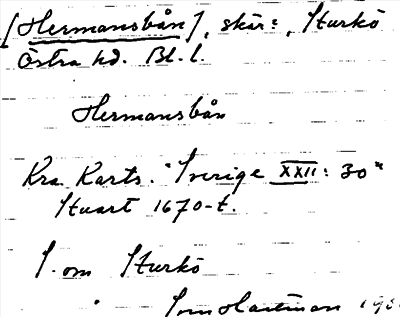 [Hermansbån], skär:, Sturkö
Östra hd. Bl. l.
Hermansbån
Kra. Karts. "Sverige XXII: 30"
Stuart 1670-t.
S. om Sturkö